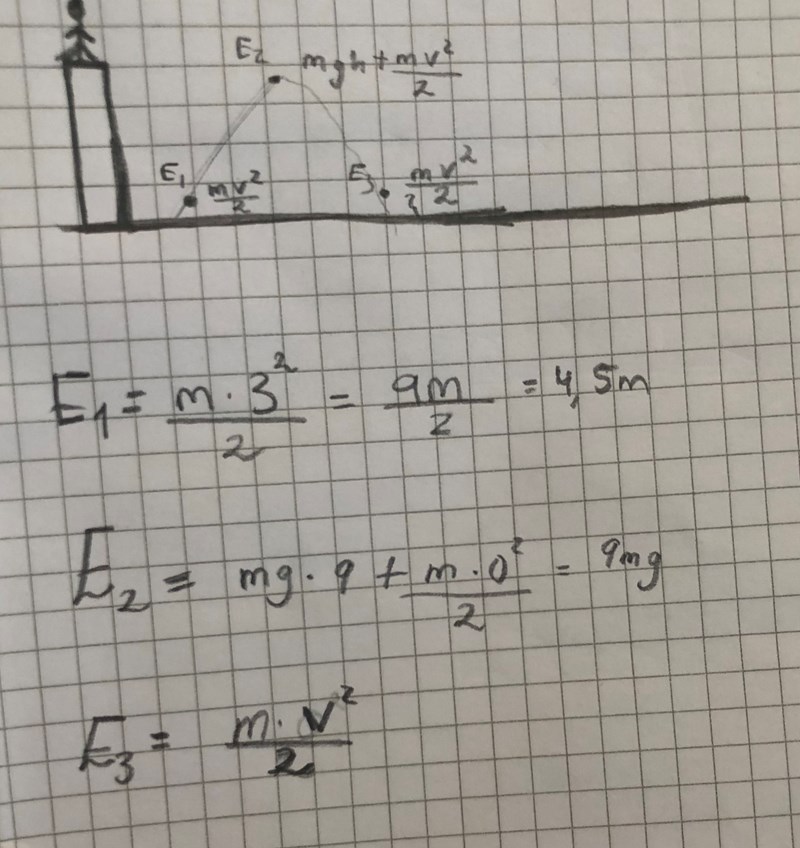 E₂ mgh + mv²/2
E₁ mv²/2 E₃ mv²/2
E₁ = m · 3²/2 = 9m/2 = 4,5m
E₂ = mg · 9 + m · 0²/2 = 9mg
E₃ = m · v²/2